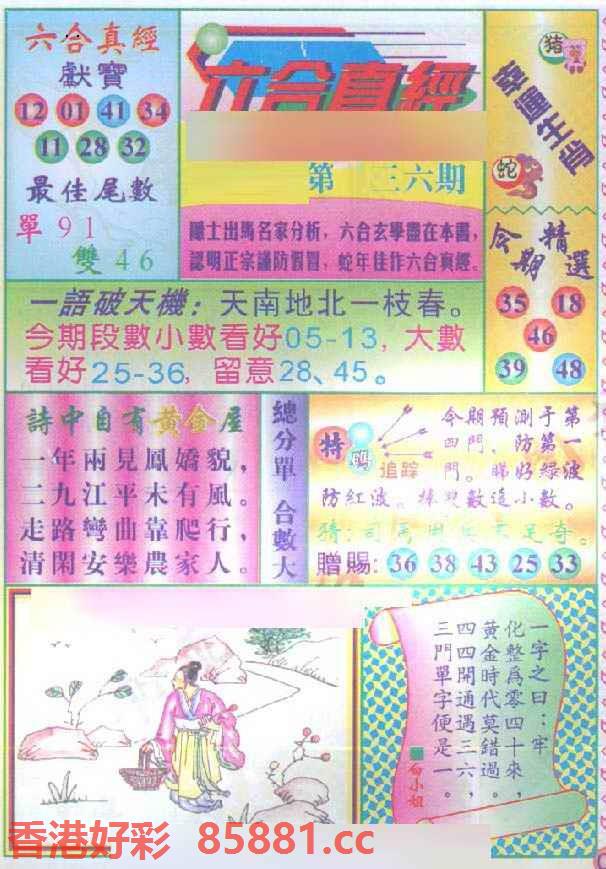 六合真經
獻寶
12 01 41 34
11 28 32
最佳尾數
單 91
雙 46
六合真經
第 三六期
隱士出馬名家分析，六合玄學盡在本書，
認明正宗謹防假冒，蛇年佳作六合真經。
幸運生肖
豬
蛇
今期精選
35 18
46
39 48
一語破天機：天南地北一枝春。
今期段數小數看好05-13，大數
看好25-36，留意28、45。
詩中自有黃金屋
一年兩見鳳嬌貌，
二九江平未有風。
走路彎曲靠爬行，
清閑安樂農家人。
總分單 合數大
特碼
追踪
今期預測于第
四門、防第一
門。睇好綠波
防紅波。數這小數。
猜：司馬足奇。
贈賜：36 38 43 25 33
一字之曰：牢
化整為零四十來，
黃金時代莫錯過。
四四開通遇三六，
三門單字便是一。
■白小姐
香港好彩 85881.cc